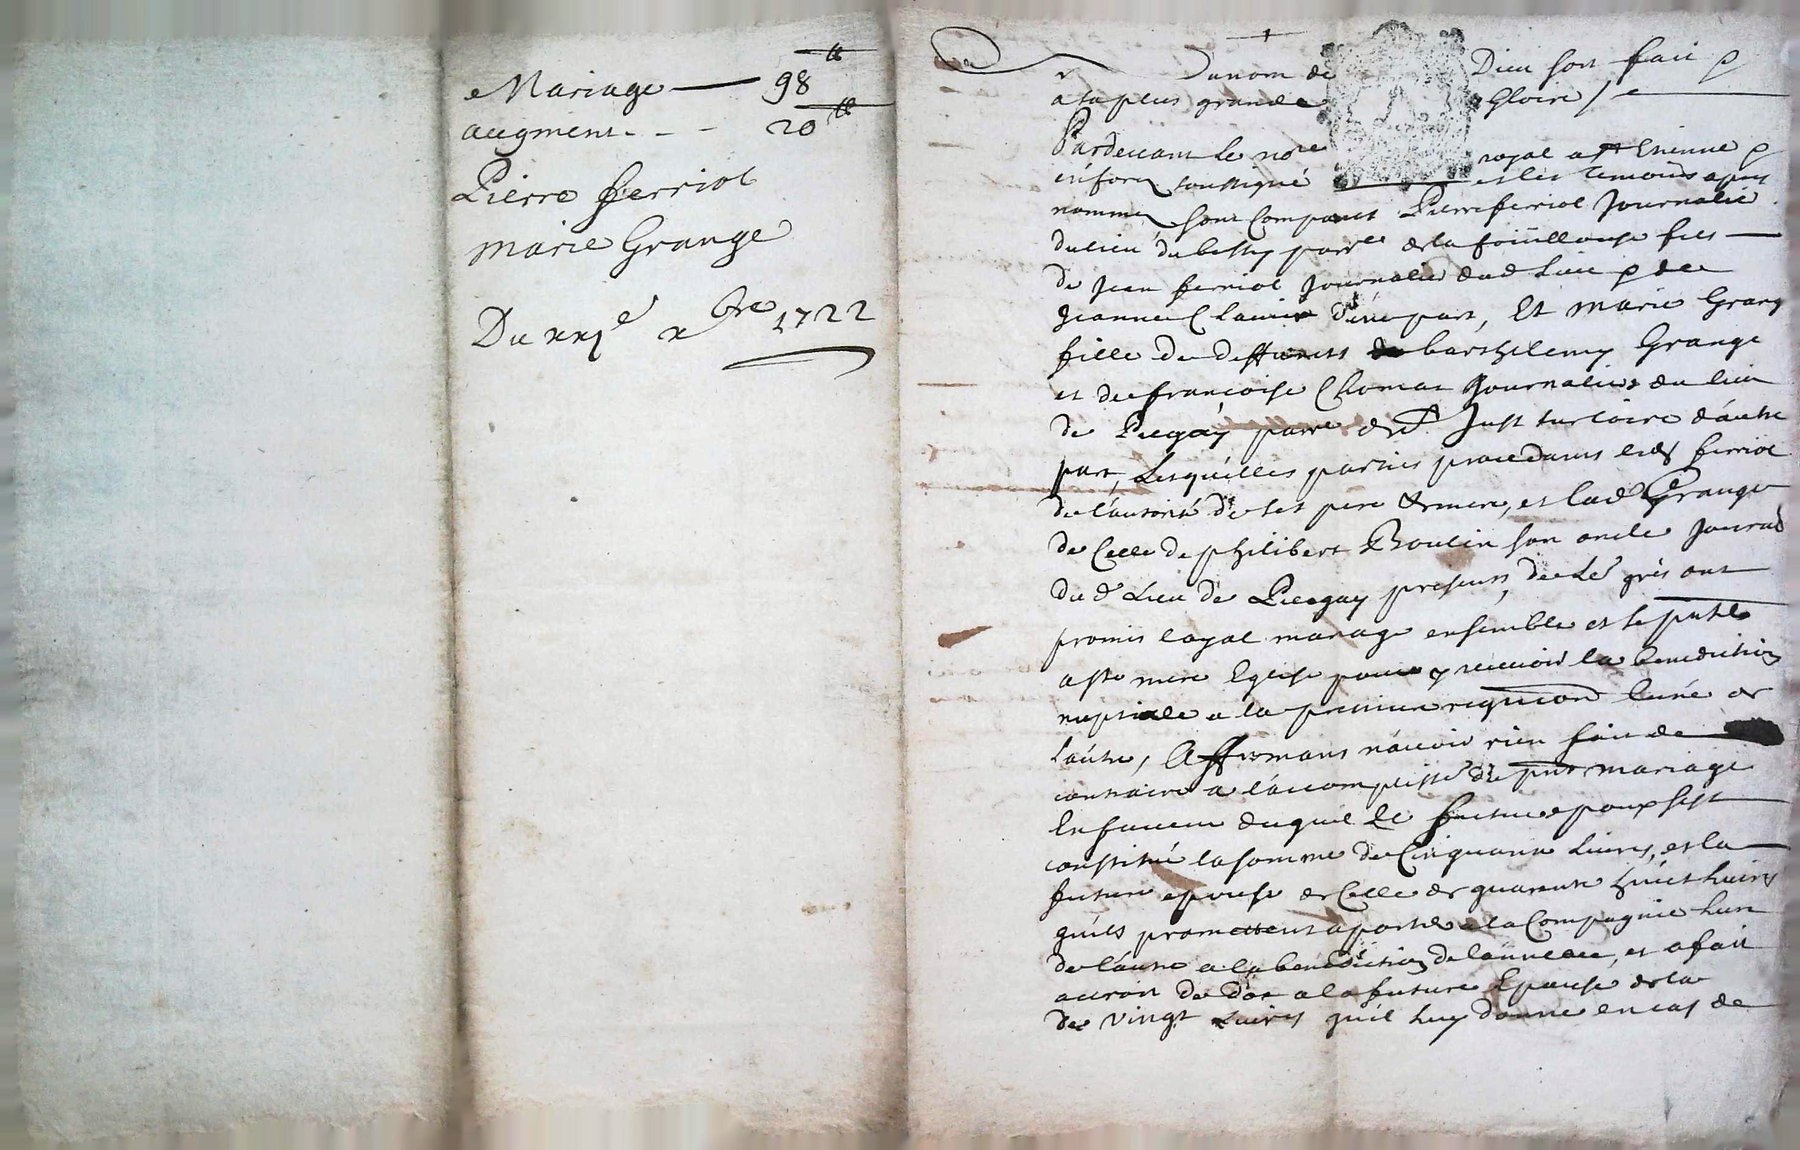 Mariage — 98 ₶
augment - - - 20 ₶
Pierre fferriol
Marie Grange
Du xxje xbre 1722
Du nom de Dieu soit fait
a sa plus grande Gloire /
Pardevant le nore royal a St Etienne
en forez soussigné et les temoins apres
nommez sont comparus Pierre fferriol Journalie
du lieu du bessy parr.e de la foüillouse fils
de Jean fferriol Journalie dud lieu & de
Jeanne Clavier d'une part, Et Marie Grang
fille de deffunts barthelemy Grange
et de francoise Chomat Journaliers du lieu
de Piegay parre de St Just sur loire d'autre
part, Lesquelles parties procedants led fferriol
de l'autorité de ses pere & mere, et lad Grange
de Celle de philibert Boulin son oncle Journal
dud Lieu de Piegay presents, de Leur grés ont
promis loyal mariage ensemble et se pnter
a ste mere Eglise pour y recevoir la benediction
nuptiale a la premiere requisition lune de
l'autre, Affirmans n'avoir rien fait de
contraire a l'accomplisst du pnt mariage
En faveur duquel Le futur epoux s'est
constitué la somme de Cinquante Livres, et la
future epouse de Celle de quarente huict Livres
quils promettent aporter a la Compagnie Lun
de l'autre a la benediction de l'anneau, et a fait
accroit de dot a la future Epouse de la
de vingt Livres quil luy donne en cas de